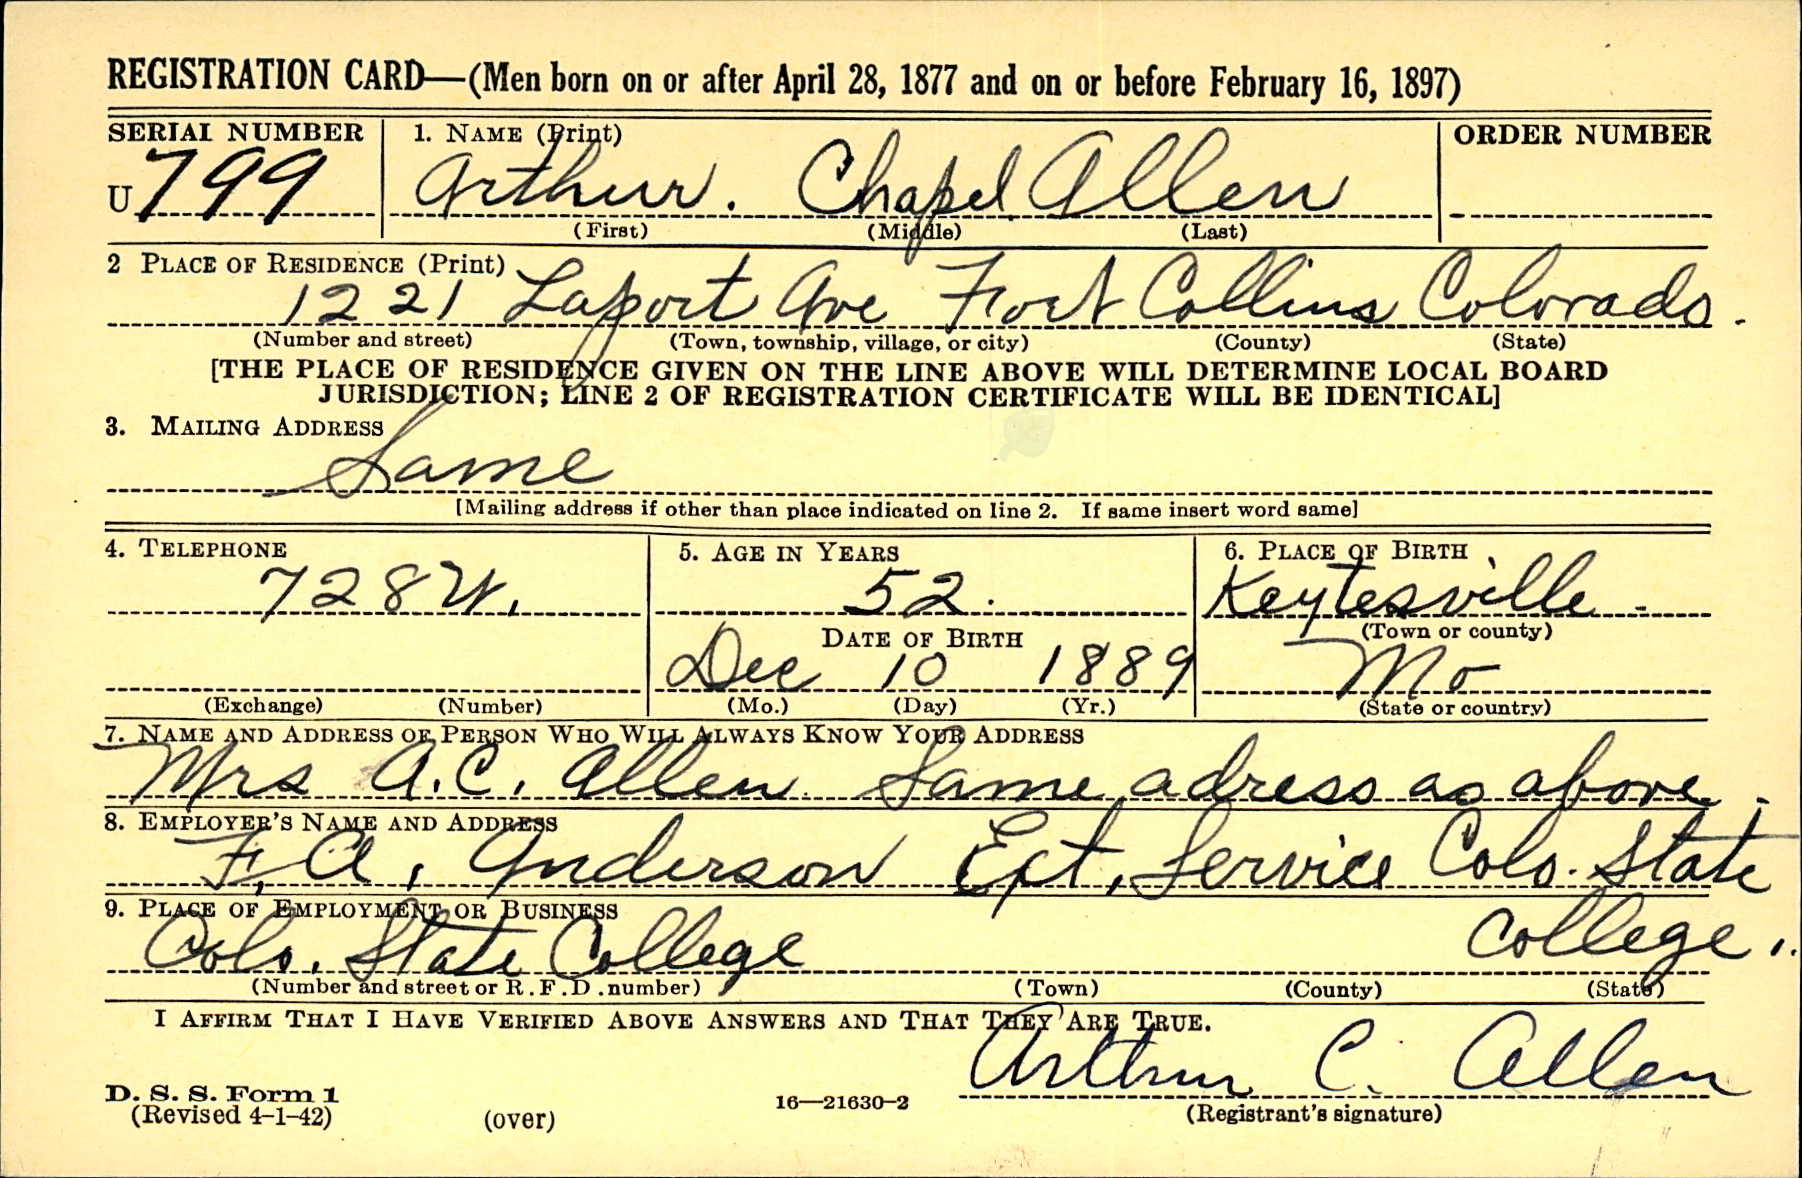 REGISTRATION CARD—(Men born on or after April 28, 1877 and on or before February 16, 1897)
SERIAL NUMBER 1. NAME (Print) ORDER NUMBER
U 799 Arthur. Chapel Allen
(First) (Middle) (Last)
2 PLACE OF RESIDENCE (Print)
1221 Laport Ave Fort Collins Colorado.
(Number and street) (Town, township, village, or city) (County) (State)
[THE PLACE OF RESIDENCE GIVEN ON THE LINE ABOVE WILL DETERMINE LOCAL BOARD
JURISDICTION; LINE 2 OF REGISTRATION CERTIFICATE WILL BE IDENTICAL]
3. MAILING ADDRESS
Same
[Mailing address if other than place indicated on line 2. If same insert word same]
4. TELEPHONE 5. AGE IN YEARS 6. PLACE OF BIRTH
728W. 52. Keytesville -
DATE OF BIRTH (Town or county)
Dec 10 1889 Mo
(Exchange) (Number) (Mo.) (Day) (Yr.) (State or country)
7. NAME AND ADDRESS OF PERSON WHO WILL ALWAYS KNOW YOUR ADDRESS
Mrs A.C. Allen Same adress as above.
8. EMPLOYER'S NAME AND ADDRESS
F. A. Anderson Ext. Service Colo. State
9. PLACE OF EMPLOYMENT OR BUSINESS
Colo. State College College..
(Number and street or R.F.D. number) (Town) (County) (State)
I AFFIRM THAT I HAVE VERIFIED ABOVE ANSWERS AND THAT THEY ARE TRUE.
Arthur C. Allen
D. S. S. Form 1
(Revised 4-1-42) (over) 16—21630-2 (Registrant's signature)